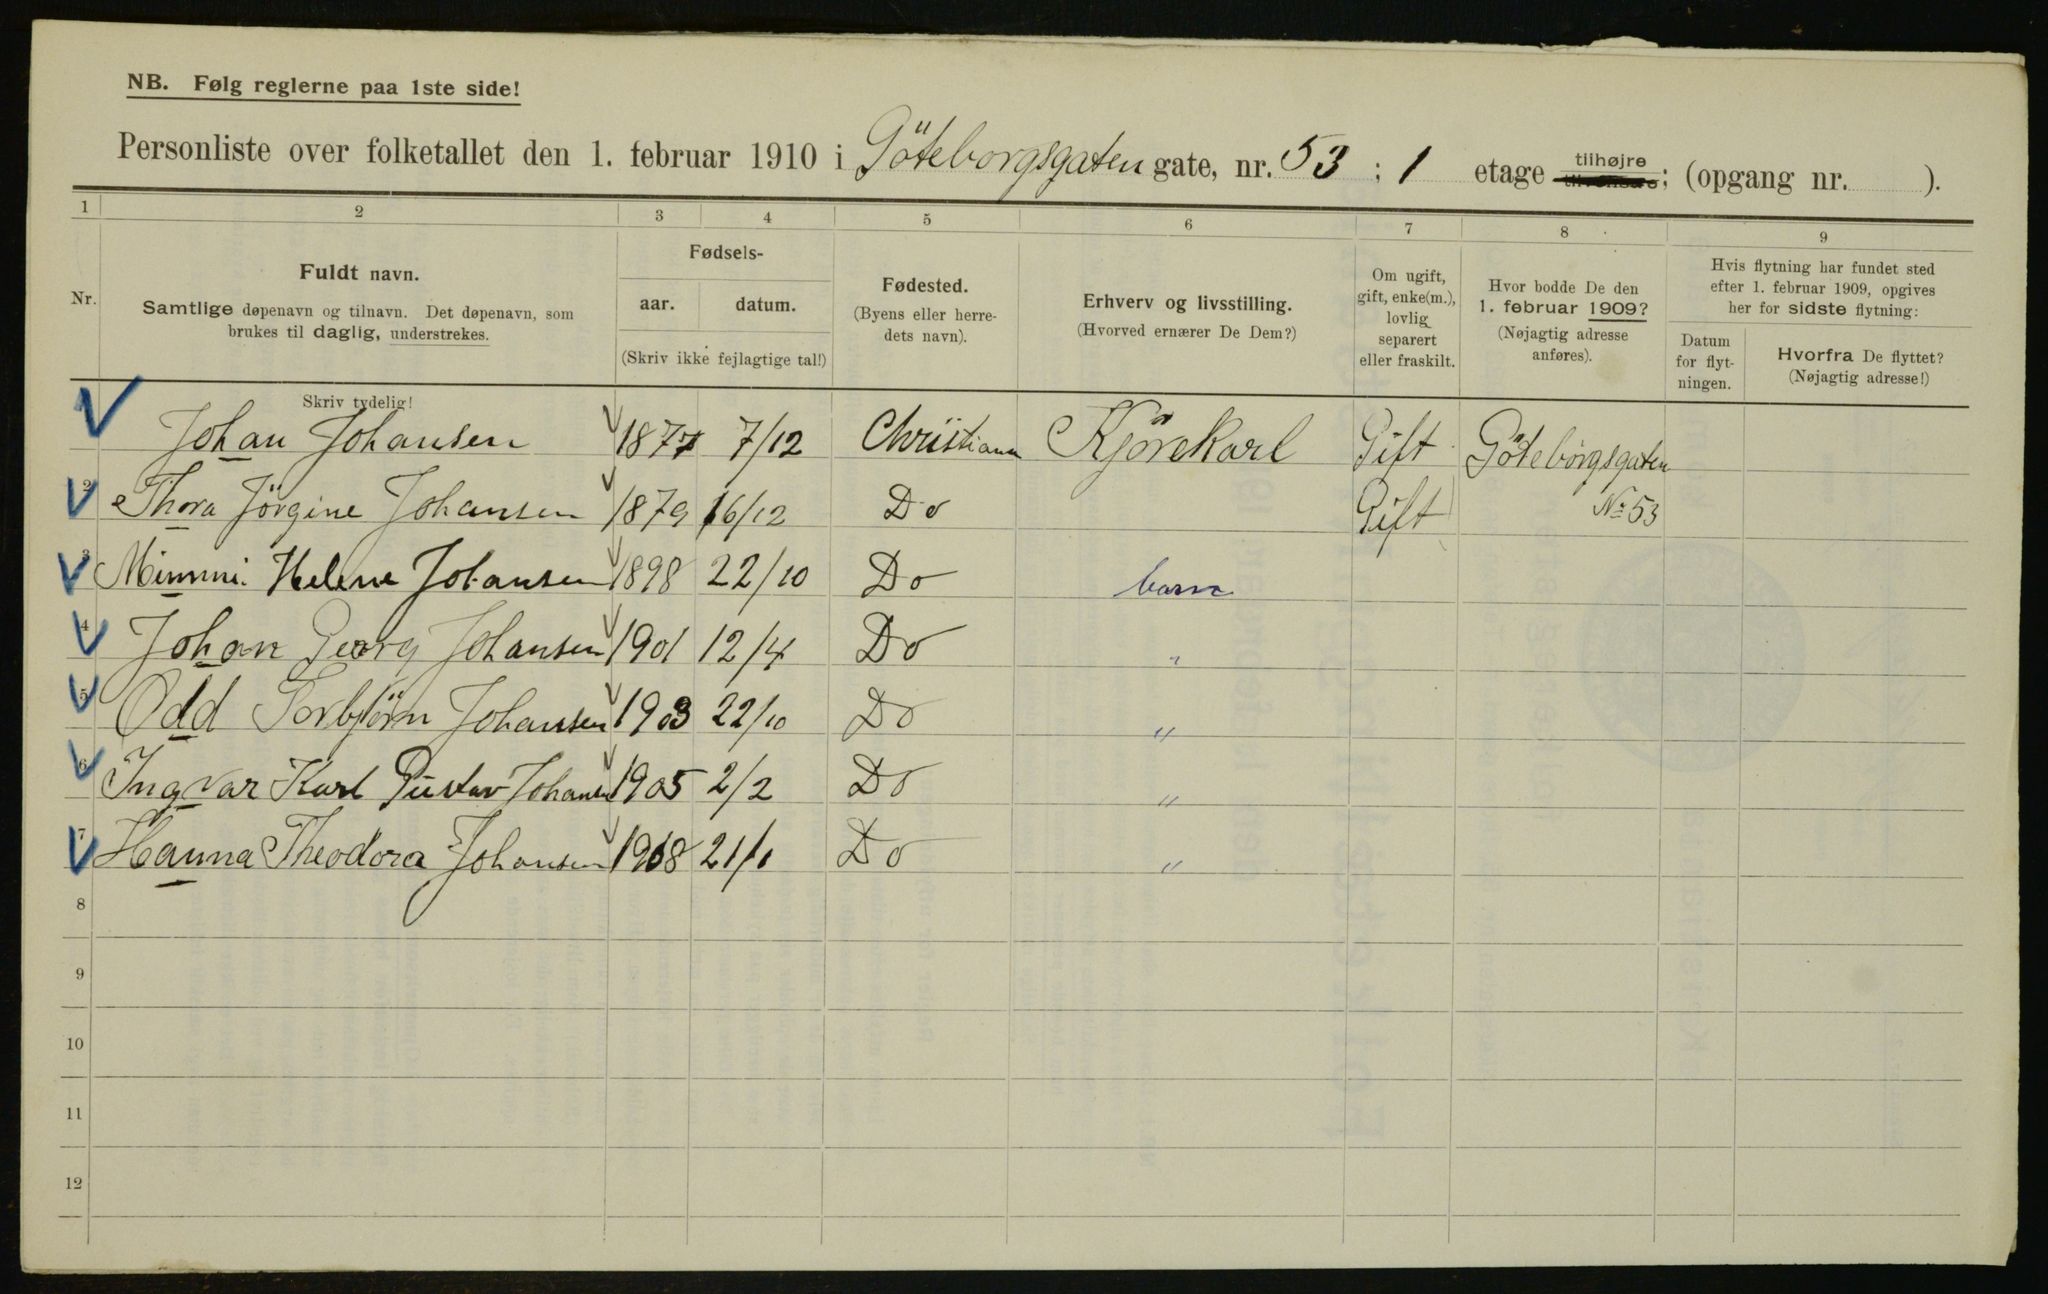 NB. Følg reglerne paa 1ste side!
Personliste over folketallet den 1. februar 1910 i Göteborgsgaten gate, nr. 53 ; 1 etage tilhøjre tilvenstre; (opgang nr. ).
1 2 3 4 5 6 7 8 9
Nr.
Fuldt navn.
Samtlige døpenavn og tilnavn. Det døpenavn, som
brukes til daglig, understrekes.
Skriv tydelig!
Fødsels-
aar. datum.
(Skriv ikke fejlagtige tal!)
Fødested.
(Byens eller herre-
dets navn).
Erhverv og livsstilling.
(Hvorved ernærer De Dem?)
Om ugift,
gift, enke(m.),
lovlig
separert
eller fraskilt.
Hvor bodde De den
1. februar 1909?
(Nøjagtig adresse
anføres).
Hvis flytning har fundet sted
efter 1. februar 1909, opgives
her for sidste flytning:
Datum
for flyt-
ningen.
Hvorfra De flyttet?
(Nøjagtig adresse!)
Johan Johansen 1877 7/12 Christiania Kjörekarl Gift Göteborgsgaten
2 Thora Jörgine Johansen 1879 16/12 Do Gift No 53
3 Mimmi Helene Johansen 1898 22/10 Do barn
4 Johan Georg Johansen 1901 12/4 Do "
5 Odd Torbjörn Johansen 1903 22/10 Do "
6 Ingvar Karl Gustav Johansen 1905 2/2 Do "
7 Hanna Theodora Johansen 1908 21/1 Do "
8
9
10
11
12